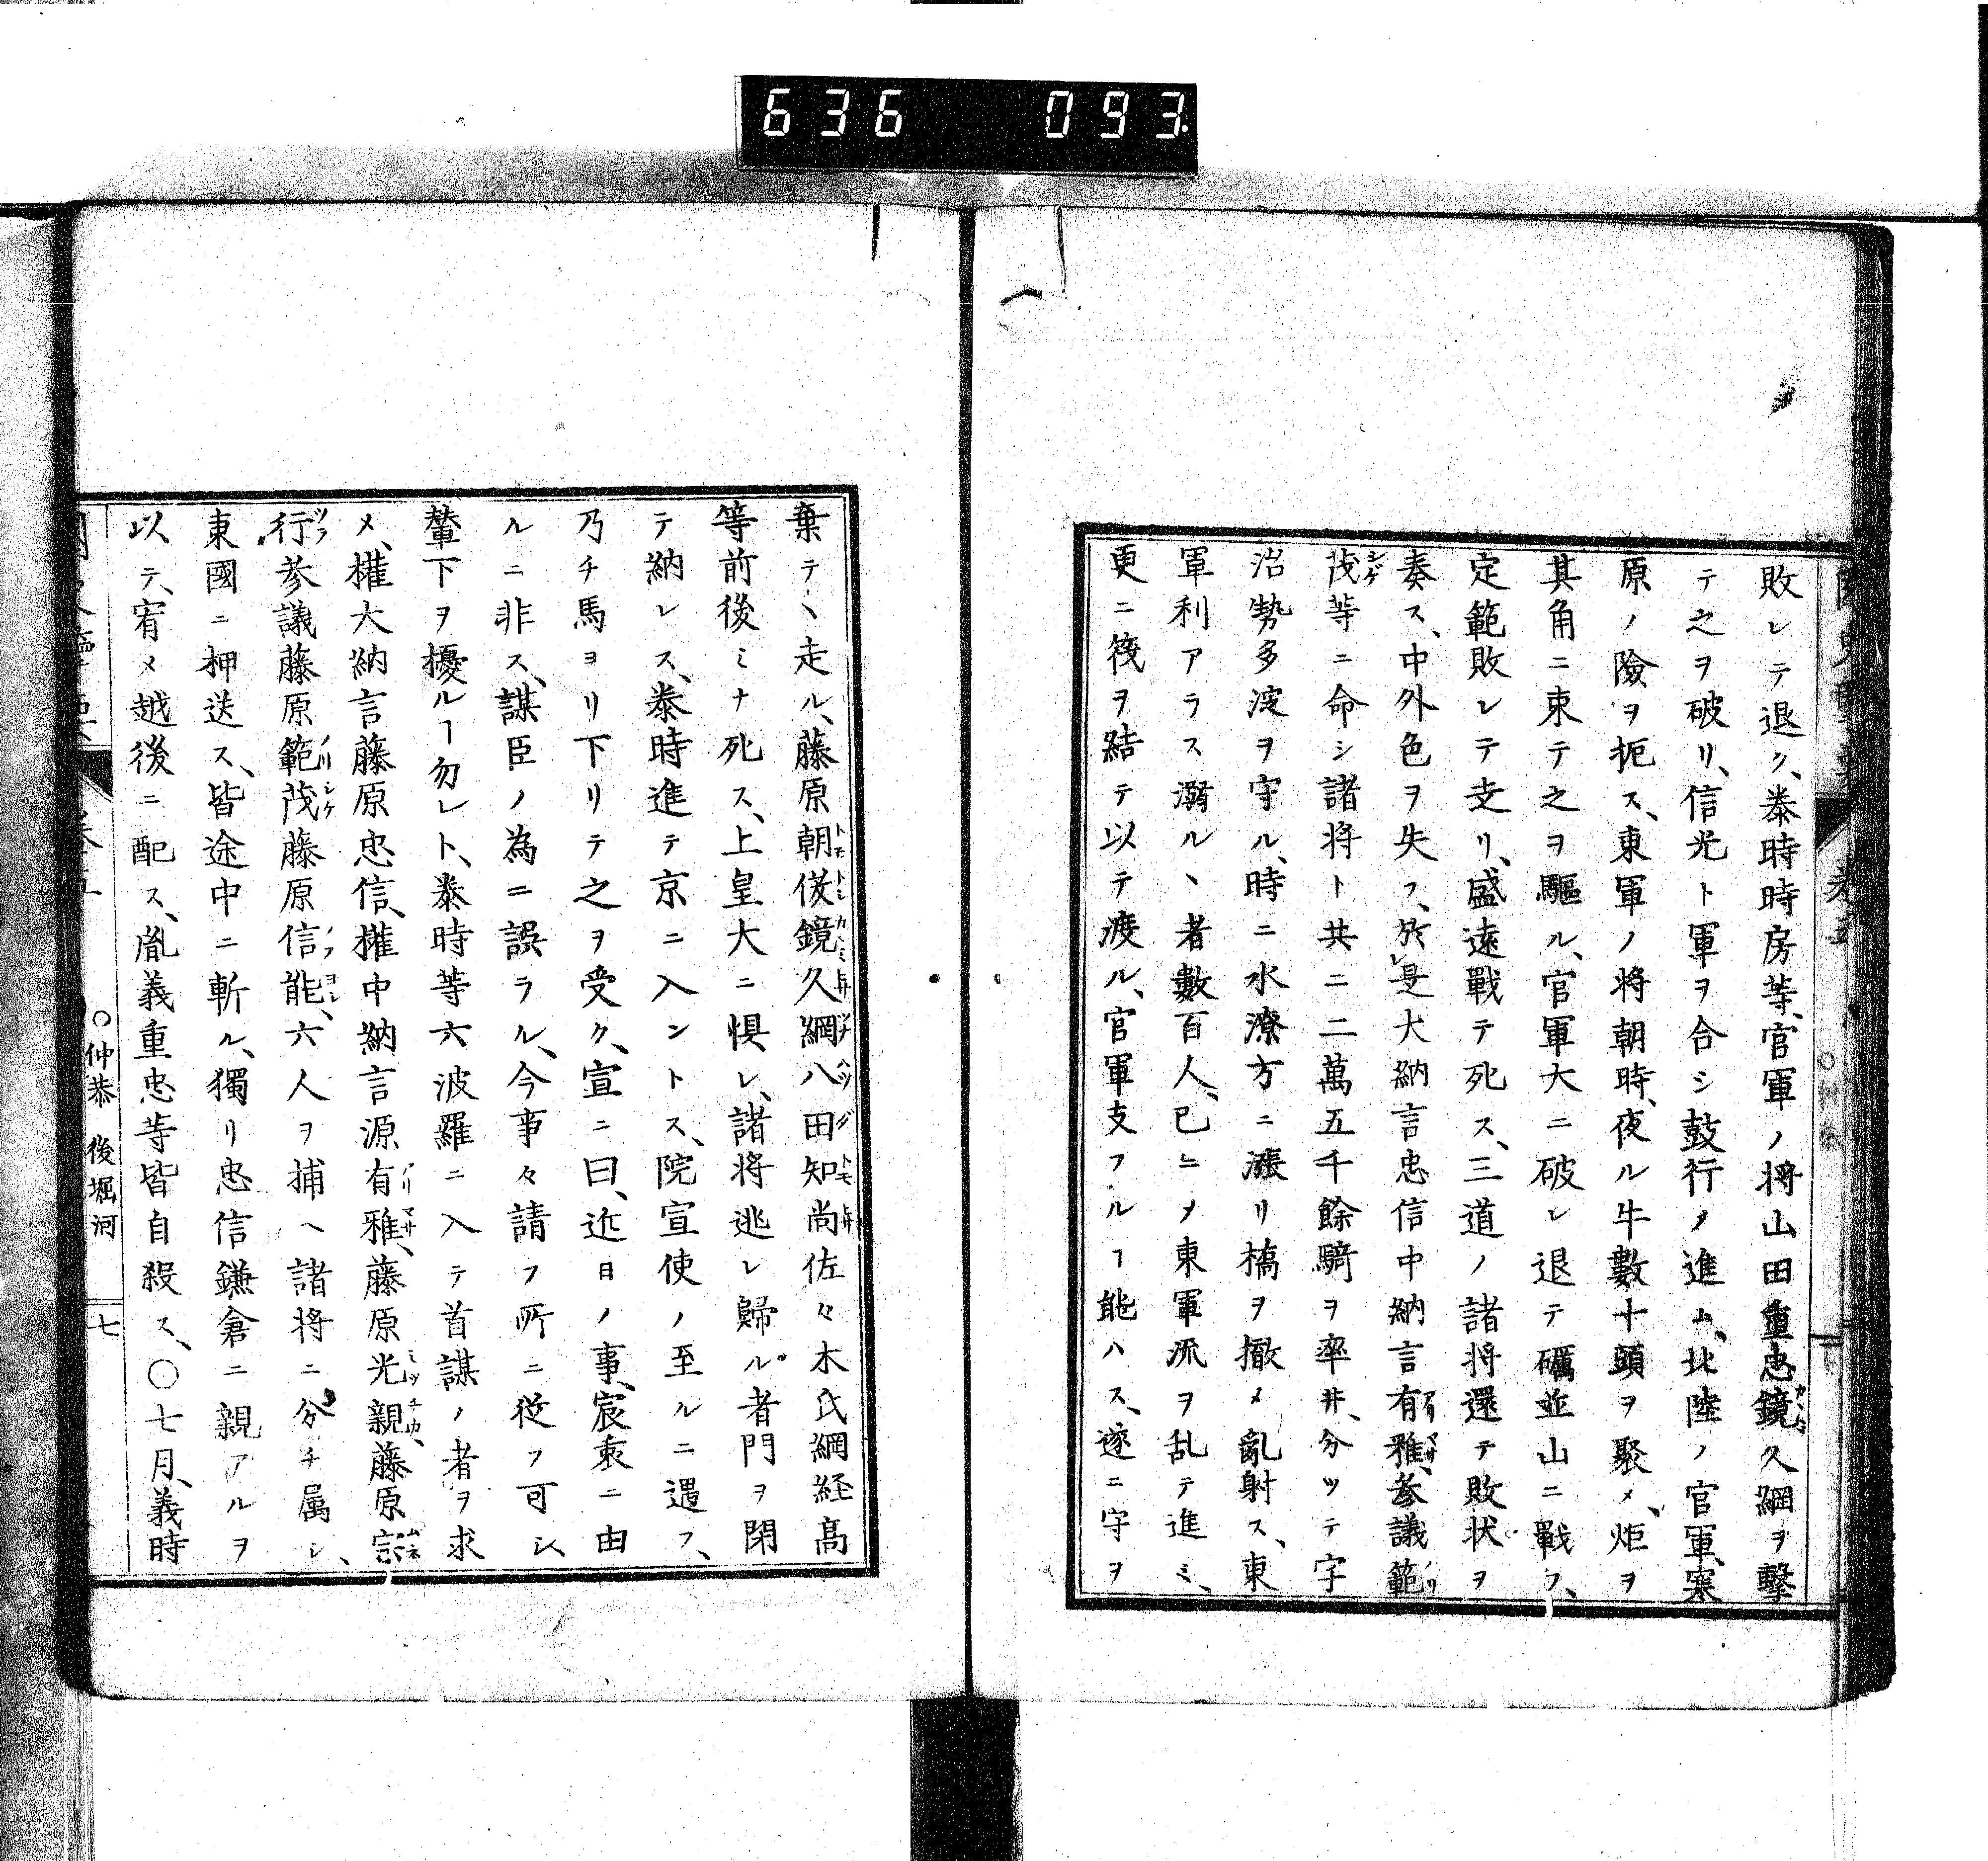 636 093
敗レテ退ク、泰時時房等、官軍ノ将山田重忠鏡久綱ヲ擊
テ之ヲ破リ、信光ト軍ヲ合シ鼓行メ進ム、北陸ノ官軍、寒
原ノ險ヲ扼ス、東軍ノ将朝時、夜ル牛數十頭ヲ聚メ、炬ヲ
其角ニ束テ之ヲ驅ル、官軍大ニ破レ退テ礪並山ニ戰フ、
定範敗レテ支リ、盛遠戰テ死ス、三道ノ諸将還テ敗状ヲ
奏ス、中外色ヲ失フ、於是大納言忠信中納言有雅、参議範
茂等ニ命シ諸将ト共ニ二萬五千餘騎ヲ率井、分ツテ宇
治勢多淀ヲ守ル、時ニ水潦方ニ漲リ橋ヲ撤メ亂射ス、東
軍利アラス溺ル、者數百人、已ニメ東軍流ヲ乱テ進ミ、
更ニ筏ヲ結テ以テ渡ル、官軍支フルヿ能ハス、遂ニ守ヲ
棄テヽ走ル、藤原朝俊鏡久綱八田知尚佐々木氏綱経高
等前後ミナ死ス、上皇大ニ惧レ、諸将逃レ歸ル者門ヲ閉
テ納レス、泰時進テ京ニ入ントス、院宣使ノ至ルニ遇フ、
乃チ馬ヨリ下リテ之ヲ受ク、宣ニ曰、近日ノ事、宸衷ニ由
ルニ非ス、謀臣ノ為ニ誤ラル、今事々請フ所ニ従フ可シ、
輦下ヲ擾ルヿ勿レト、泰時等六波羅ニ入テ首謀ノ者ヲ求
メ、權大納言藤原忠信、權中納言源有雅、藤原光親、藤原宗
行参議藤原範茂藤原信能、六人ヲ捕ヘ諸将ニ分チ属シ、
東國ニ押送ス、皆途中ニ斬ル、獨リ忠信鎌倉ニ親アルヲ
以テ、宥メ越後ニ配ス、胤義重忠等皆自殺ス、〇七月、義時
〇仲恭 後堀河 七